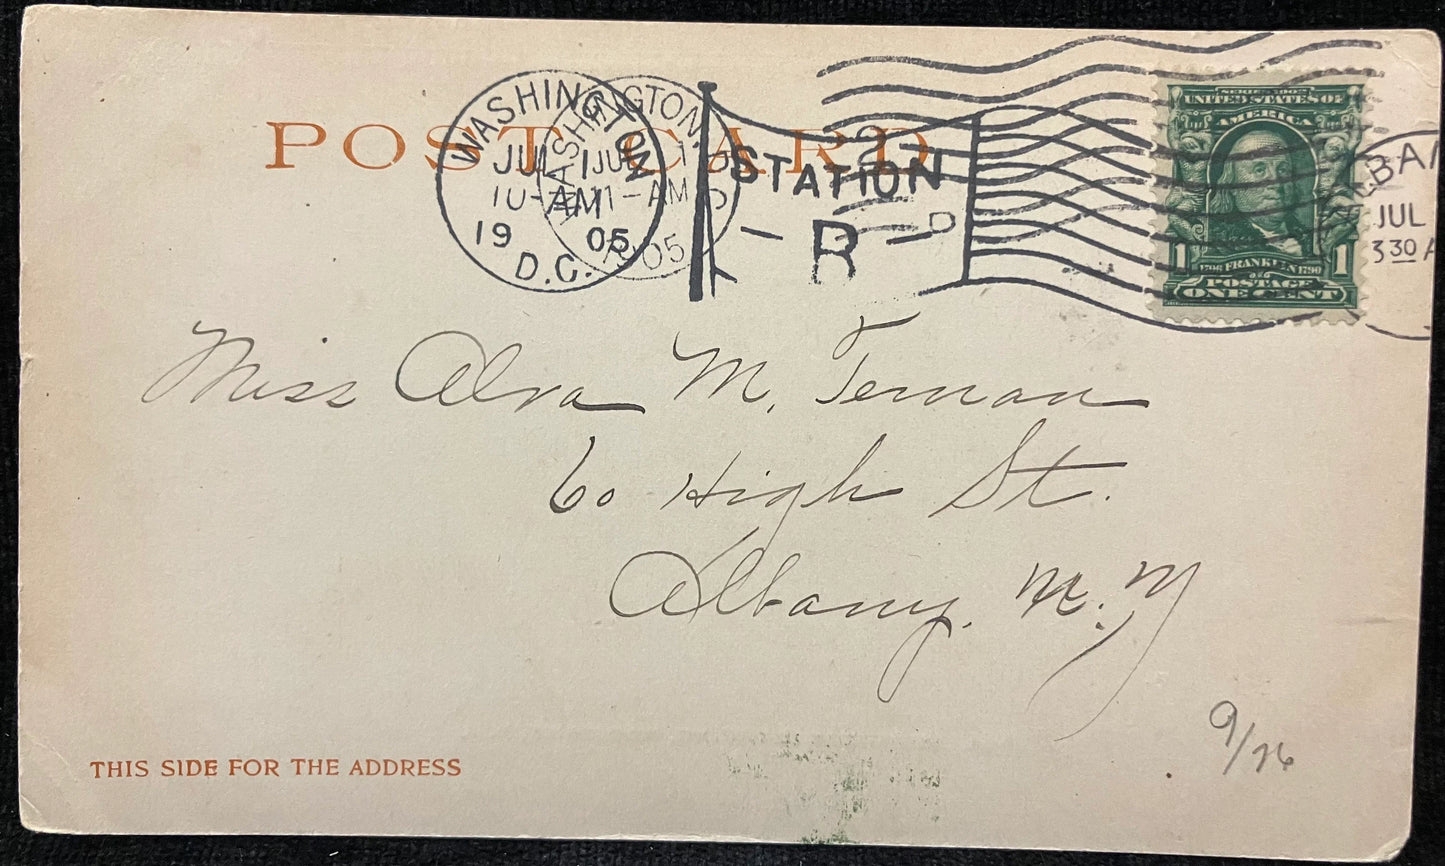 POST CARD
WASHINGTON
JUL 1
10-AM
1905
D.C.
WASHINGTON,
JUL 1
11-AM
05
STATION
R
D
SERIES 1902
UNITED STATES OF
AMERICA
1 1706 FRANKLIN 1790 1
POSTAGE
ONE CENT
JUL
3 30 A
Miss Alva M. Ternan
60 High St.
Albany. N.Y
9/26
THIS SIDE FOR THE ADDRESS